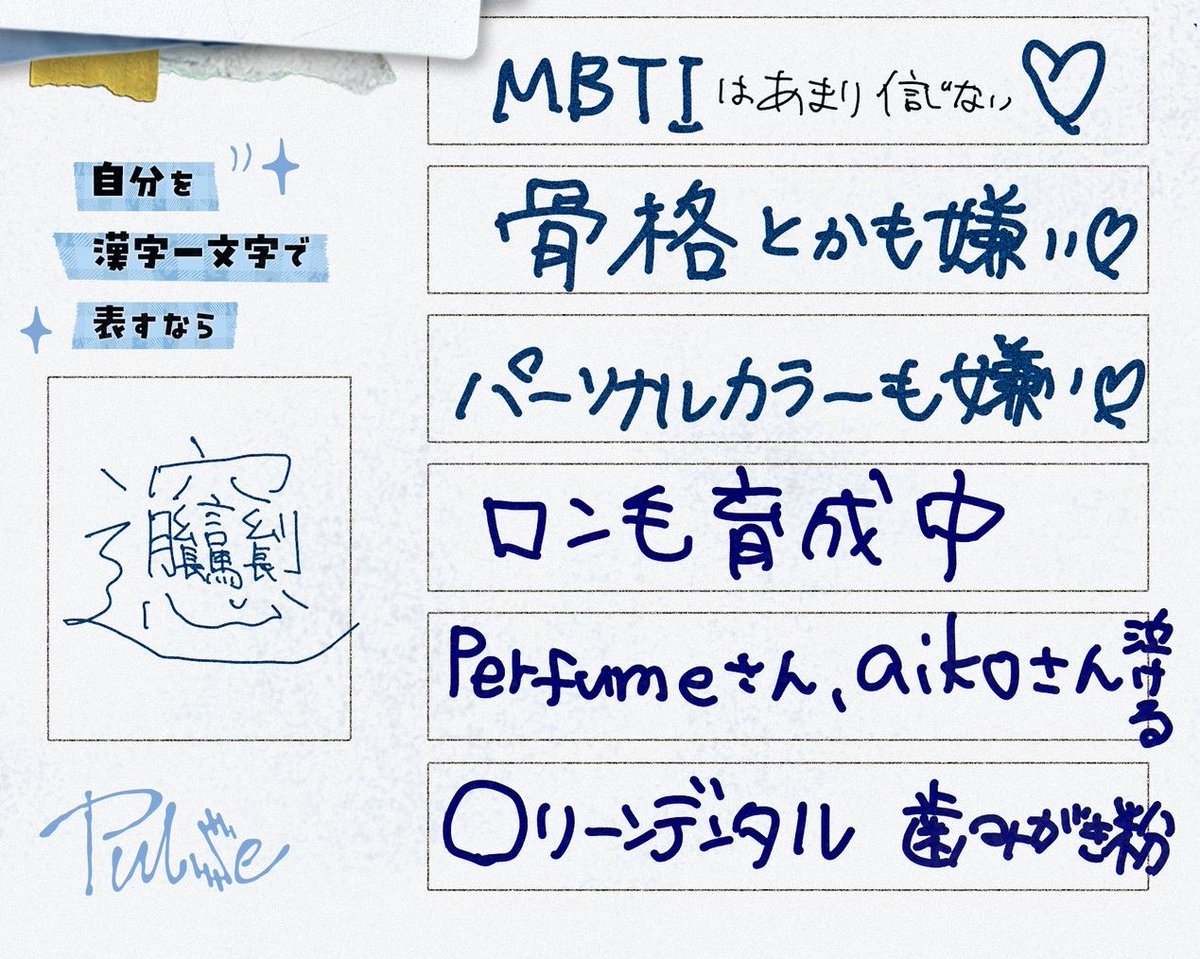 自分を
漢字一文字で
表すなら
MBTIはあまり信じない♡
骨格とかも嫌い♡
パーソナルカラーも嫌い♡
ロン毛育成中
Perfumeさん、aikoさん泣ける
〇リーンデンタル 歯みがき粉